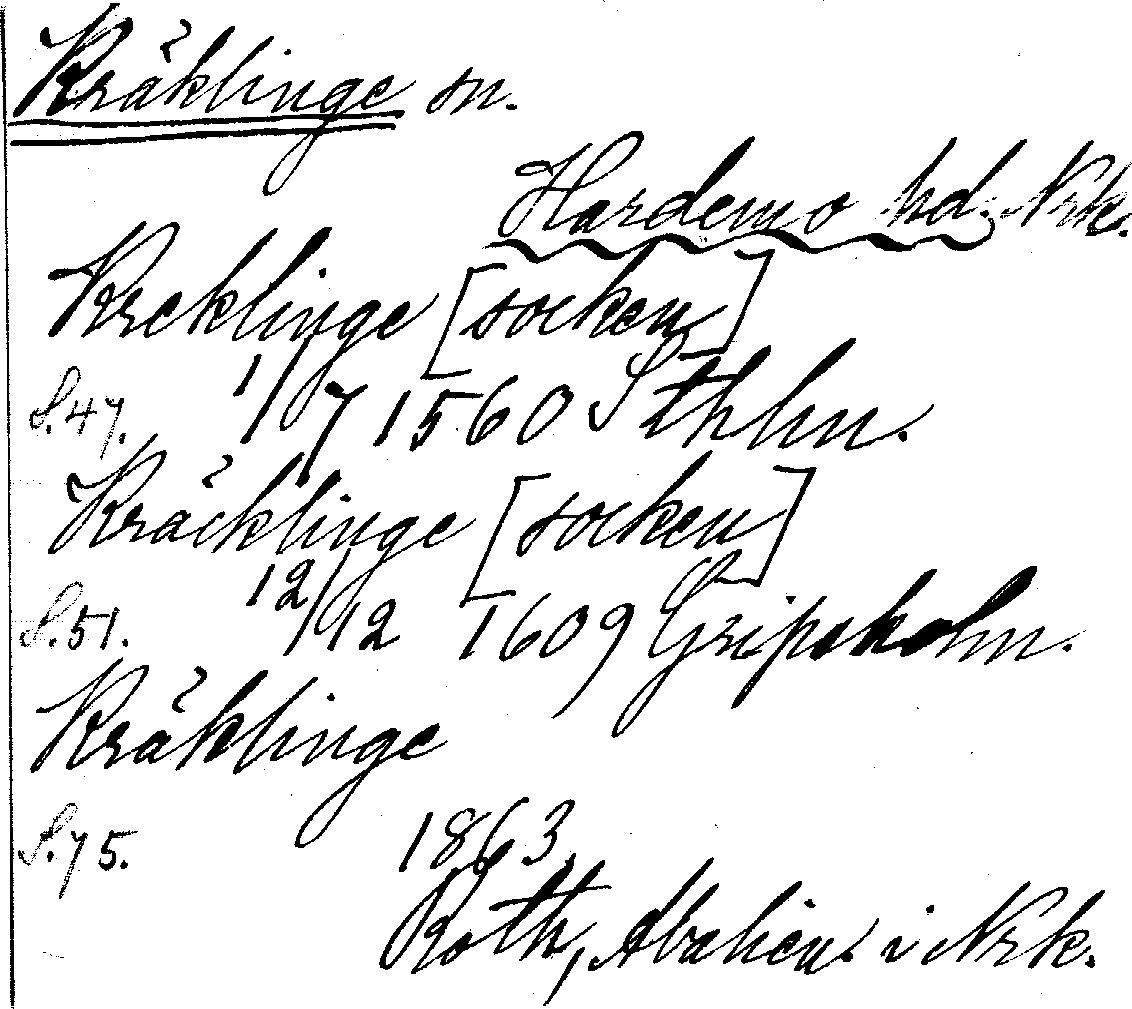 Kräklinge sn.
Hardemo hd. Nrk.
Kreklinge [socken]
S.47. 1/7 1560 Sthlm.
Kräcklinge [socken]
S.51. 12/12 1609 Gripsholm.
Kräklinge
S.75. 1863
Roth, i Nrk.